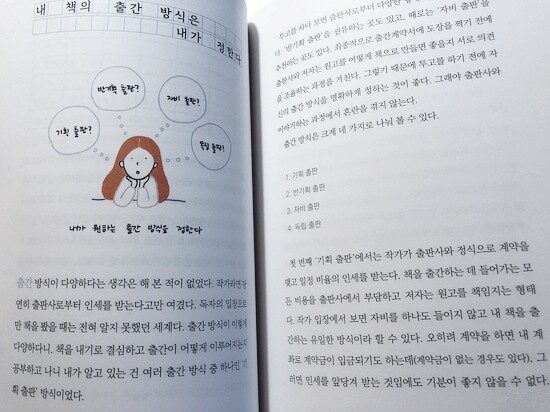 내 책의 출간 방식은
내가 정한다
반기획 출판?
자비 출판?
기획 출판?
독립 출판?
내가 원하는 출간 방식을 정한다
출간 방식이 다양하다는 생각은 해 본 적이 없었다. 작가라면 당
연히 출판사로부터 인세를 받는다고만 여겼다. 독자의 입장으로
만 책을 봤을 때는 전혀 알지 못했던 세계다. 출간 방식이 이렇게
다양하다니. 책을 내기로 결심하고 출간이 어떻게 이루어지는지
공부하고 나니 내가 알고 있는 건 여러 출간 방식 중 하나인 '기
획 출판' 방식이었다.
투고를 하다 보면 출판사로부터 다양한
다. '반기획 출판'을 권유하는 곳도 있고, 때로는 '자비 출판'을
추천하는 곳도 있다. 최종적으로 출간 계약서에 도장을 찍기 전에
출판사와 저자는 원고를 어떻게 책으로 만들면 좋을지 서로 의견
을 조율하는 과정을 거친다. 그렇기 때문에 투고를 하기 전에 자
신의 출간 방식을 명확하게 정하는 것이 좋다. 그래야 출판사와
이야기하는 과정에서 혼란을 겪지 않는다.
출간 방식은 크게 네 가지로 나눠 볼 수 있다.
1. 기획 출판
2. 반기획 출판
3. 자비 출판
4. 독립 출판
첫 번째 '기획 출판'에서는 작가가 출판사와 정식으로 계약을
맺고 일정 비율의 인세를 받는다. 책을 출간하는 데 들어가는 모
든 비용을 출판사에서 부담하고 저자는 원고를 책임지는 형태
다. 작가 입장에서 보면 자비를 하나도 들이지 않고 내 책을 출
간하는 유일한 방식이라 할 수 있다. 오히려 계약을 하면 내 계
좌로 계약금이 입금되기도 하는데(계약금이 없는 경우도 있다), 그
러면 인세를 앞당겨 받는 것임에도 기분이 좋지 않을 수 없다.